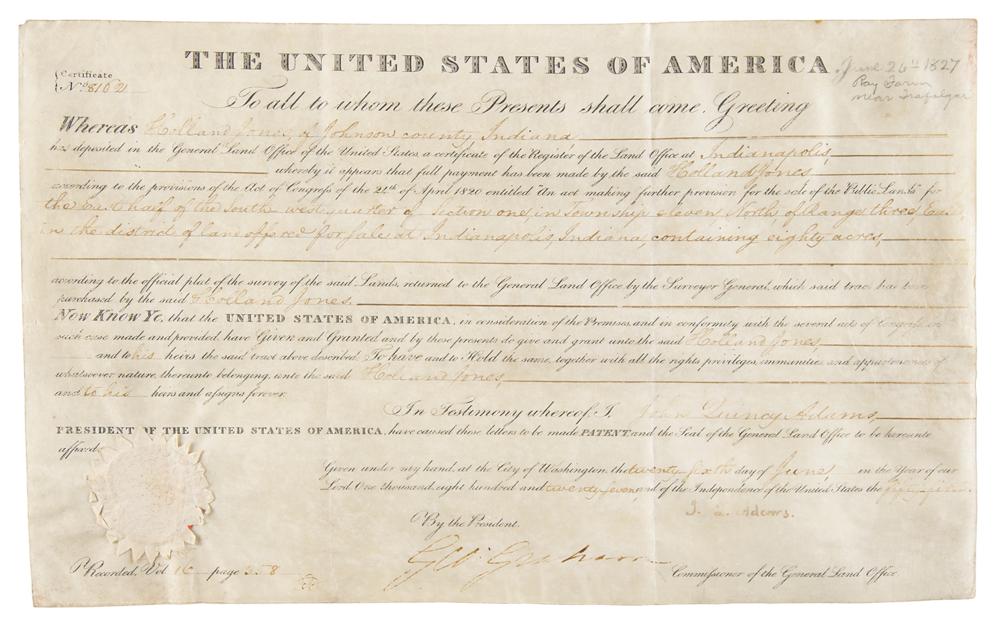 THE UNITED STATES OF AMERICA
June 26th 1827
Ray Farm
near Trafalgar
Certificate
No. 8102
To all to whom these Presents shall come, Greeting
Whereas Holland Jones, of Johnson county Indiana
has deposited in the General Land Office of the United States, a certificate of the Register of the Land Office at Indianapolis,
whereby it appears that full payment has been made by the said Holland Jones
according to the provisions of the Act of Congress of the 24th of April 1820 entitled "An act making further provision for the sale of the Public Lands," for
the East half of the South west quarter of Section one, in Township eleven North, of Range three, East
in the district of land offered for sale at Indianapolis, Indiana, containing eighty acres,
according to the official plat of the survey of the said Lands, returned to the General Land Office by the Surveyor General, which said tract has been
purchased by the said Holland Jones.
Now Know Ye, that the UNITED STATES OF AMERICA, in consideration of the Premises, and in conformity with the several acts of Congress, in
such case made and provided, have Given and Granted and by these presents do give and grant unto the said Holland Jones,
and to his heirs the said tract above described: To have and to Hold the same, together with all the rights, privileges, immunities and appurtenances of
whatsoever nature, thereunto belonging, unto the said Holland Jones,
and to his heirs and assigns forever.
In Testimony whereof, I, John Quincy Adams
PRESIDENT OF THE UNITED STATES OF AMERICA, have caused these letters to be made PATENT, and the Seal of the General Land Office to be hereunto
affixed.
Given under my hand, at the City of Washington, the twenty sixth day of June, in the Year of our
Lord One thousand, eight hundred and twenty seven, and of the Independence of the United States the fifty first.
J. Q. Adams.
By the President.
Geo. Graham Commissioner of the General Land Office.
Recorded, Vol 16 page 358